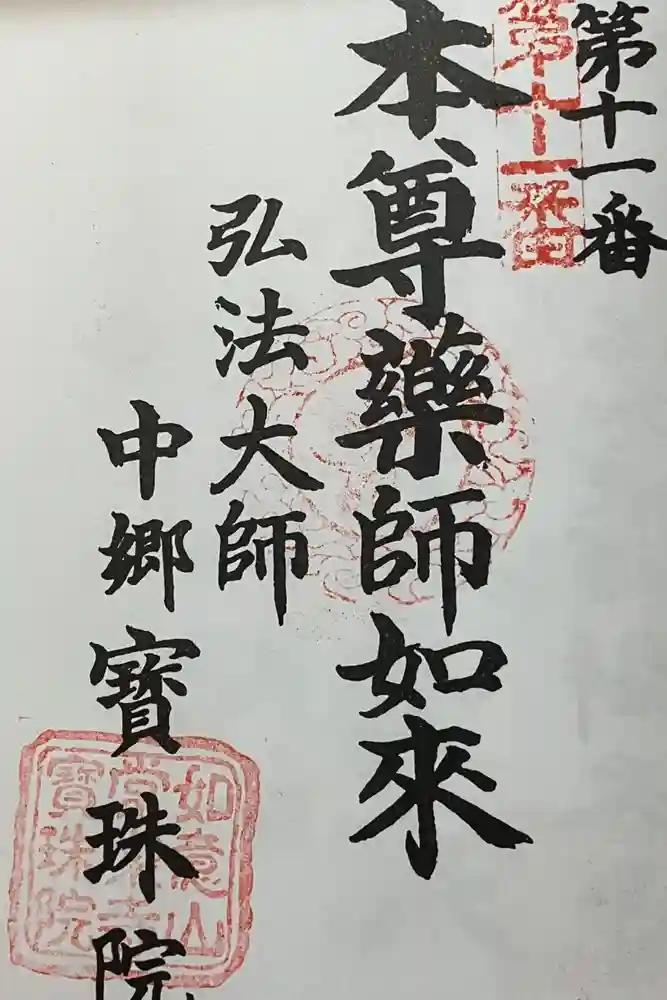 第十一番
第十一番
本尊藥師如來
弘法大師
中郷寶珠院
如意山
寶珠院